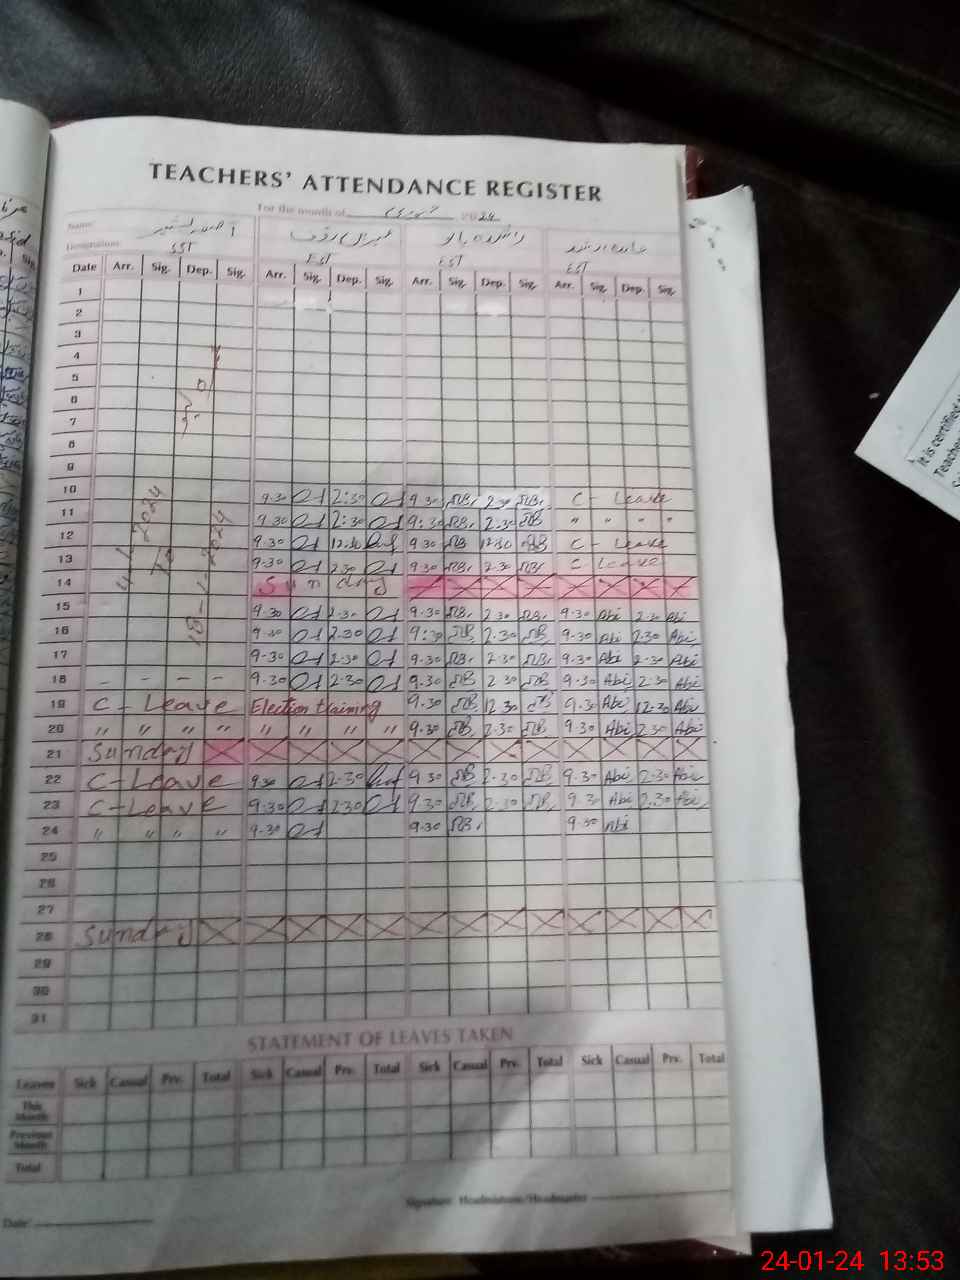 TEACHERS' ATTENDANCE REGISTER
For the month of جنوری 2024
Name
Designation: SST EST EST EST
Date Arr. Sig. Dep. Sig. Arr. Sig. Dep. Sig. Arr. Sig. Dep. Sig. Arr. Sig. Dep. Sig.
1
2
3
4
5
6
7
8
9
10 9.30 2:30 9.30 RB, 2.30 RB, C - Leave
11 9.30 2:30 9:30 RB, 2.30 RB " " " "
12 9.30 12.30 9.30 RB 12.30 RB C - Leave
13 9.30 2.30 9.30 RB, 2.30 RB, C Leave
14 Sunday
15 9.30 2.30 9.30 RB, 2.30 RB, 9.30 Abi 2.30 Abi
16 9.30 2.30 9:30 RB, 2.30 RB, 9.30 Abi 2.30 Abi
17 9.30 2.30 9.30 RB, 2.30 RB, 9.30 Abi 2.30 Abi
18 - - - - 9.30 2.30 9.30 RB 2.30 RB 9.30 Abi 2.30 Abi
4-1-2024
18-1-2024
19 C - Leave Election training 9.30 RB, 12.30 RB 9.30 Abi 12.30 Abi
20 " " " " " " " " 9.30 RB, 2.30 RB 9.30 Abi 2.30 Abi
21 Sunday
22 C-Leave 9.30 2.30 9.30 RB 2.30 RB 9.30 Abi 2.30 Abi
23 C-Leave 9.30 2.30 9.30 RB, 2.30 RB, 9.30 Abi 2.30 Abi
24 " " " " 9.30 9.30 RB, 9.30 Abi
25
26
27
28 Sunday
29
30
31
STATEMENT OF LEAVES TAKEN
Leaves Sick Casual Prv. Total Sick Casual Prv. Total Sick Casual Prv. Total Sick Casual Prv. Total
This Month
Previous Month
Total
Signature Headmistress/Headmaster
Date:
It is certified
Teacher
24-01-24 13:53